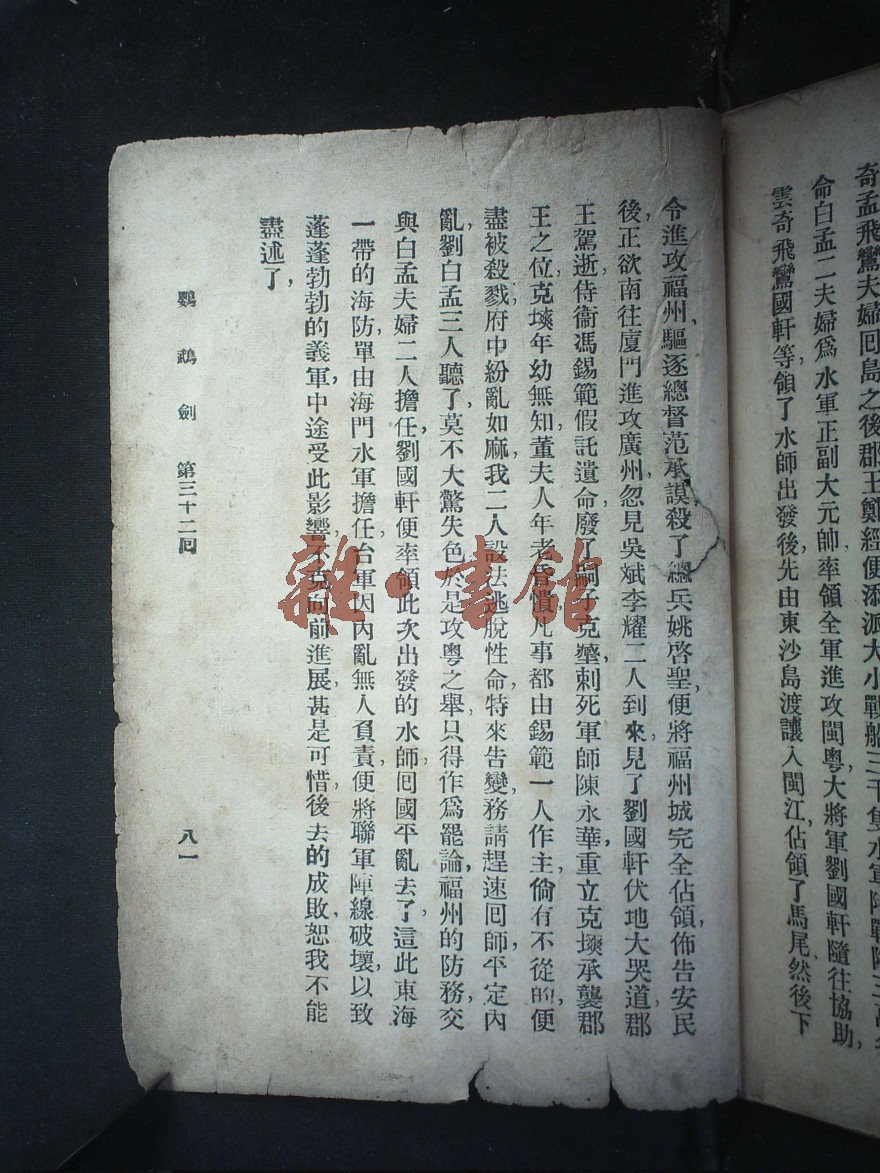 奇孟飛鸞夫婦囘島之後郡王鄭經便添派大小戰船三千隻水軍陸戰隊三萬
命白孟二夫婦爲水軍正副大元帥率領全軍進攻閩粵大將軍劉國軒隨往協助，
雲奇飛鸞國軒等領了水師出發後先由東沙島渡讓入閩江，佔領了馬尾然後下
令進攻福州，驅逐總督范承謨殺了總兵姚啓聖，便將福州城完全佔領，佈告安民
後，正欲南往廈門進攻廣州，忽見吳斌李耀二人到來，見了劉國軒伏地大哭道郡
王駕逝，侍衞馮錫範假託遺命，廢了嗣子克𡒉刺死軍師陳永華，重立克塽承襲郡
王之位，克塽年幼無知，董夫人年老昏憒，凡事都由錫範一人作主，倘有不從的，便
盡被殺戮，府中紛亂如麻，我二人設法逃脫性命，特來告變，務請趕速囘師，平定內
亂，劉白孟三人聽了，莫不大驚失色，於是攻粵之舉，只得作爲罷論，福州的防務，交
與白孟夫婦二人擔任，劉國軒便率領此次出發的水師，囘國平亂去了，這此東海
一帶的海防，單由海門水軍擔任，台軍因內亂無人負責，便將聯軍陣線破壞，以致
蓬蓬勃勃的義軍，中途受此影響，不克向前進展，甚是可惜，後去的成敗，恕我不能
盡述了，
鸚鵡劍 第三十二囘 八一
雜·書館